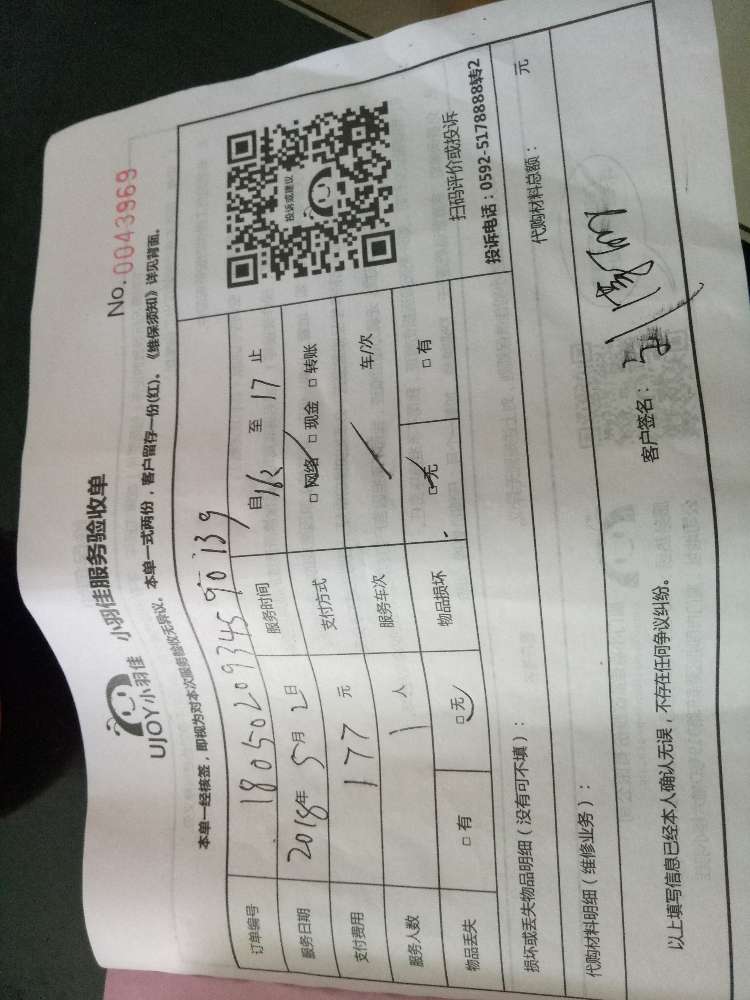 UJOY小羽佳 小羽佳服务验收单
No. 0043969
本单一经核签，即视为对本次服务验收无异议。本单一式两份，客户留存一份(红)。《维保须知》详见背面。
订单编号 1805020934590139
服务日期 2018年5月2日 服务时间 自 至17止
支付费用 177元 支付方式 □网络 □现金 □转账
服务人数 1人 服务车次 车/次
物品丢失 □有 □无 物品损坏 □无 □有
投诉或建议
扫码评价或投诉
投诉电话：0592-5178888转2
损坏或丢失物品明细（没有可不填）：
代购材料明细（维修业务）： 代购材料总额： 元
以上填写信息已经本人确认无误，不存在任何争议纠纷。 客户签名：